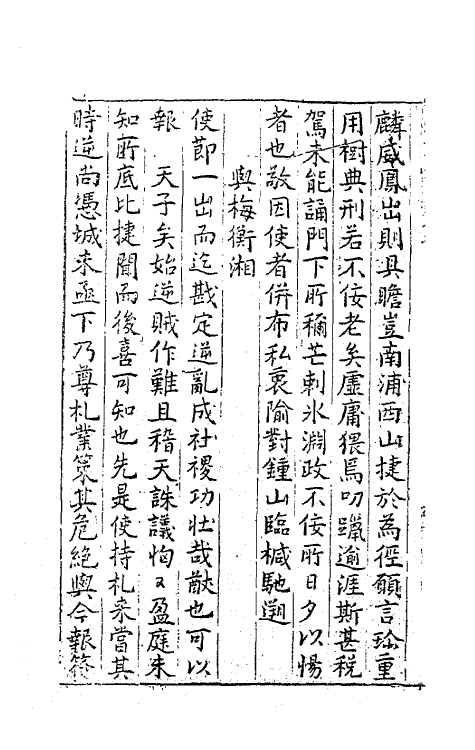 麟威鳳出則具瞻豈南浦西山捷於為徑願言珍重
用樹典刑若不佞老矣虛庸猥焉叨躐逾涯斯甚稅
駕未能誦門下所稱芒刺氷淵政不佞所日夕以惕
者也敬因使者併布私衷隃對鍾山臨椷馳遡
與梅衡湘
使節一出而迄戡定逆亂成社稷功壯哉猷也可以
報 天子矣始逆賊作難且稽天誅議恟〻盈庭未
知所底比捷聞而後喜可知也先是使持札来當其
時逆尚憑城未亟下乃尊札業策其危絶與今報符